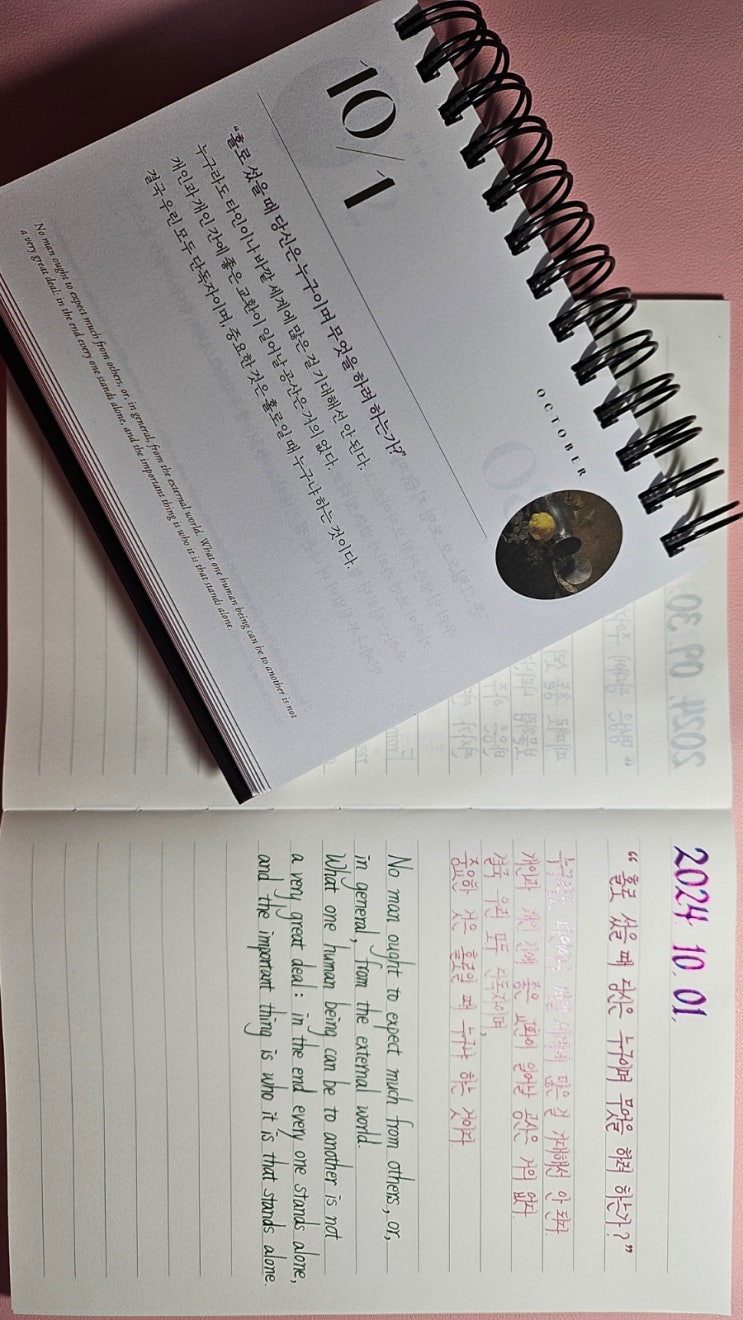 10/1
OCTOBER
"홀로 섰을 때 당신은 누구이며 무엇을 하려 하는가?"
누구라도 타인이나 바깥 세계에 많은 걸 기대해선 안 된다.
개인과 개인 간에 좋은 교환이 일어날 공산은 거의 없다.
결국 우린 모두 단독자이며, 중요한 것은 홀로일 때 누구냐 하는 것이다.
No man ought to expect much from others, or, in general, from the external world. What one human being can be to another is not
a very great deal: in the end every one stands alone, and the important thing is who it is that stands alone.
2024. 09. 30.
2024 10 01.
"홀로 섰을 때 당신은 누구이며 무엇을 하려 하는가?"
누구라도 타인이나 바깥 세계에 많은 걸 기대해선 안 된다.
개인과 개인 간에 좋은 교환이 일어날 공산은 거의 없다.
결국 우린 모두 단독자이며,
중요한 것은 홀로일 때 누구냐 하는 것이다
No man ought to expect much from others, or,
in general, from the external world.
What one human being can be to another is not
a very great deal: in the end every one stands alone,
and the important thing is who it is that stands alone.